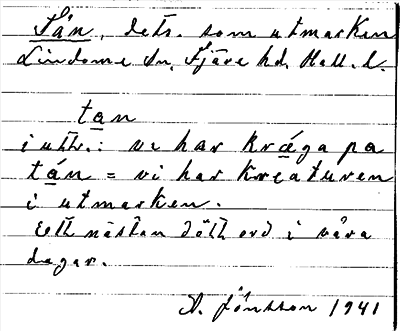 Tån, dets. som utmarken
Lindome sn, Fjäre hd, Hall. l.
tan
i uttr.: vi har kræga pa
tán = vi har kreaturen
i utmarken.
Ett nästan dött ord i våra
dagar.
A. Jönsson 1941